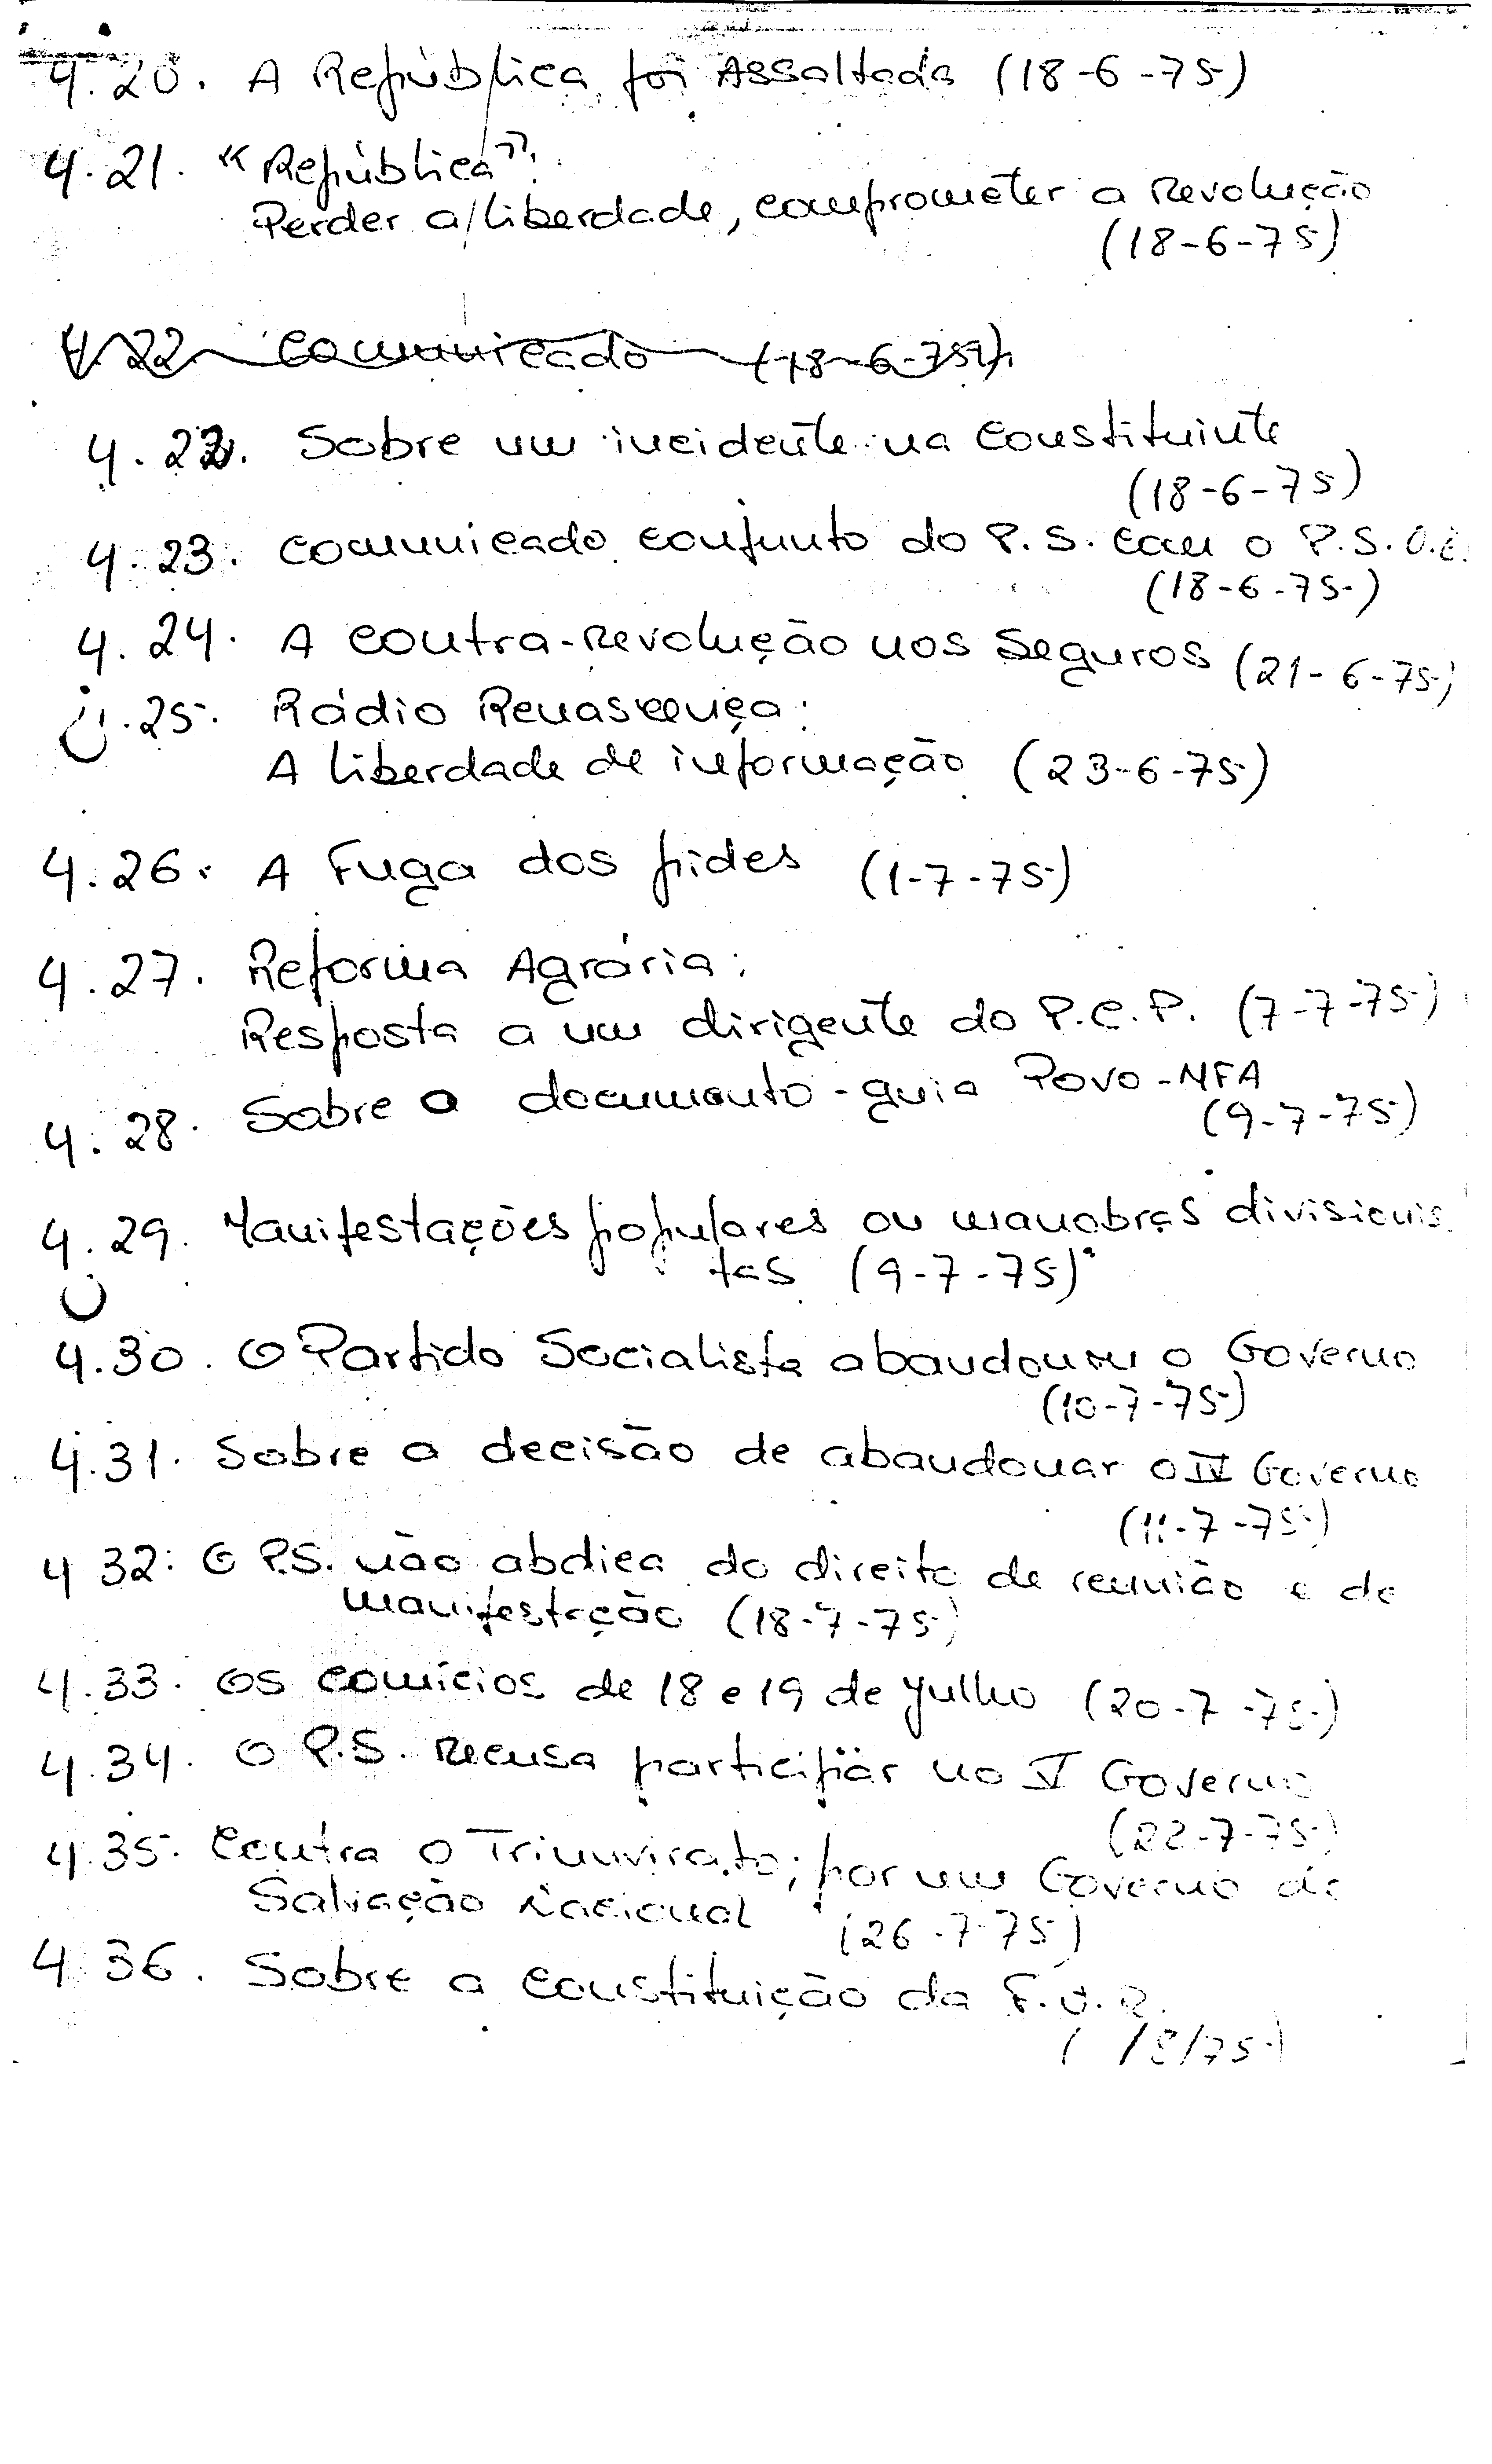 4.20. A República foi Assaltada (18-6-75)
4.21. "República":
Perder a liberdade, comprometer a Revolução
(18-6-75)
4.22 Comunicado (18-6-75)
4.22. Sobre um incidente na Constituinte
(18-6-75)
4.23. Comunicado conjunto do P.S. com o P.S.O.E.
(18-6-75)
4.24. A contra-revolução nos Seguros (21-6-75)
4.25. Rádio Renascença:
A liberdade de informação (23-6-75)
4.26. A Fuga dos pides (1-7-75)
4.27. Reforma Agrária:
Resposta a um dirigente do P.C.P. (7-7-75)
4.28. Sobre o documento-guia Povo-MFA
(9-7-75)
4.29. Manifestações populares ou manobras divisionis
tas (9-7-75)
4.30. O Partido Socialista abandonou o Governo
(10-7-75)
4.31. Sobre a decisão de abandonar o IV Governo
(11-7-75)
4.32. O P.S. não abdica do direito de reunião e de
manifestação (18-7-75)
4.33. Os comícios de 18 e 19 de Julho (20-7-75)
4.34. O P.S. recusa participar no V Governo
(22-7-75)
4.35. Contra o Triunvirato; por um Governo de
Salvação Nacional (26-7-75)
4.36. Sobre a constituição da F.U.R.
( /8/75)